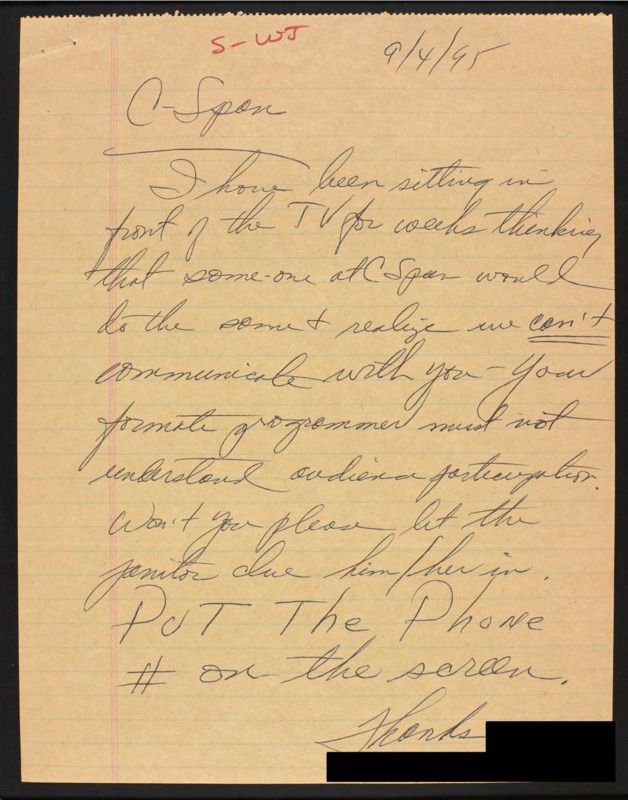 S-WJ
9/4/95
C-Span
I have been sitting in
front of the TV for weeks thinking
that some-one at C Span would
do the same & realize we can't
communicate with you - Your
formate programmer must not
understand audience participation.
Won't you please let the
janitor clue him/her in.
PUT The Phone
# on the screen.
Thanks